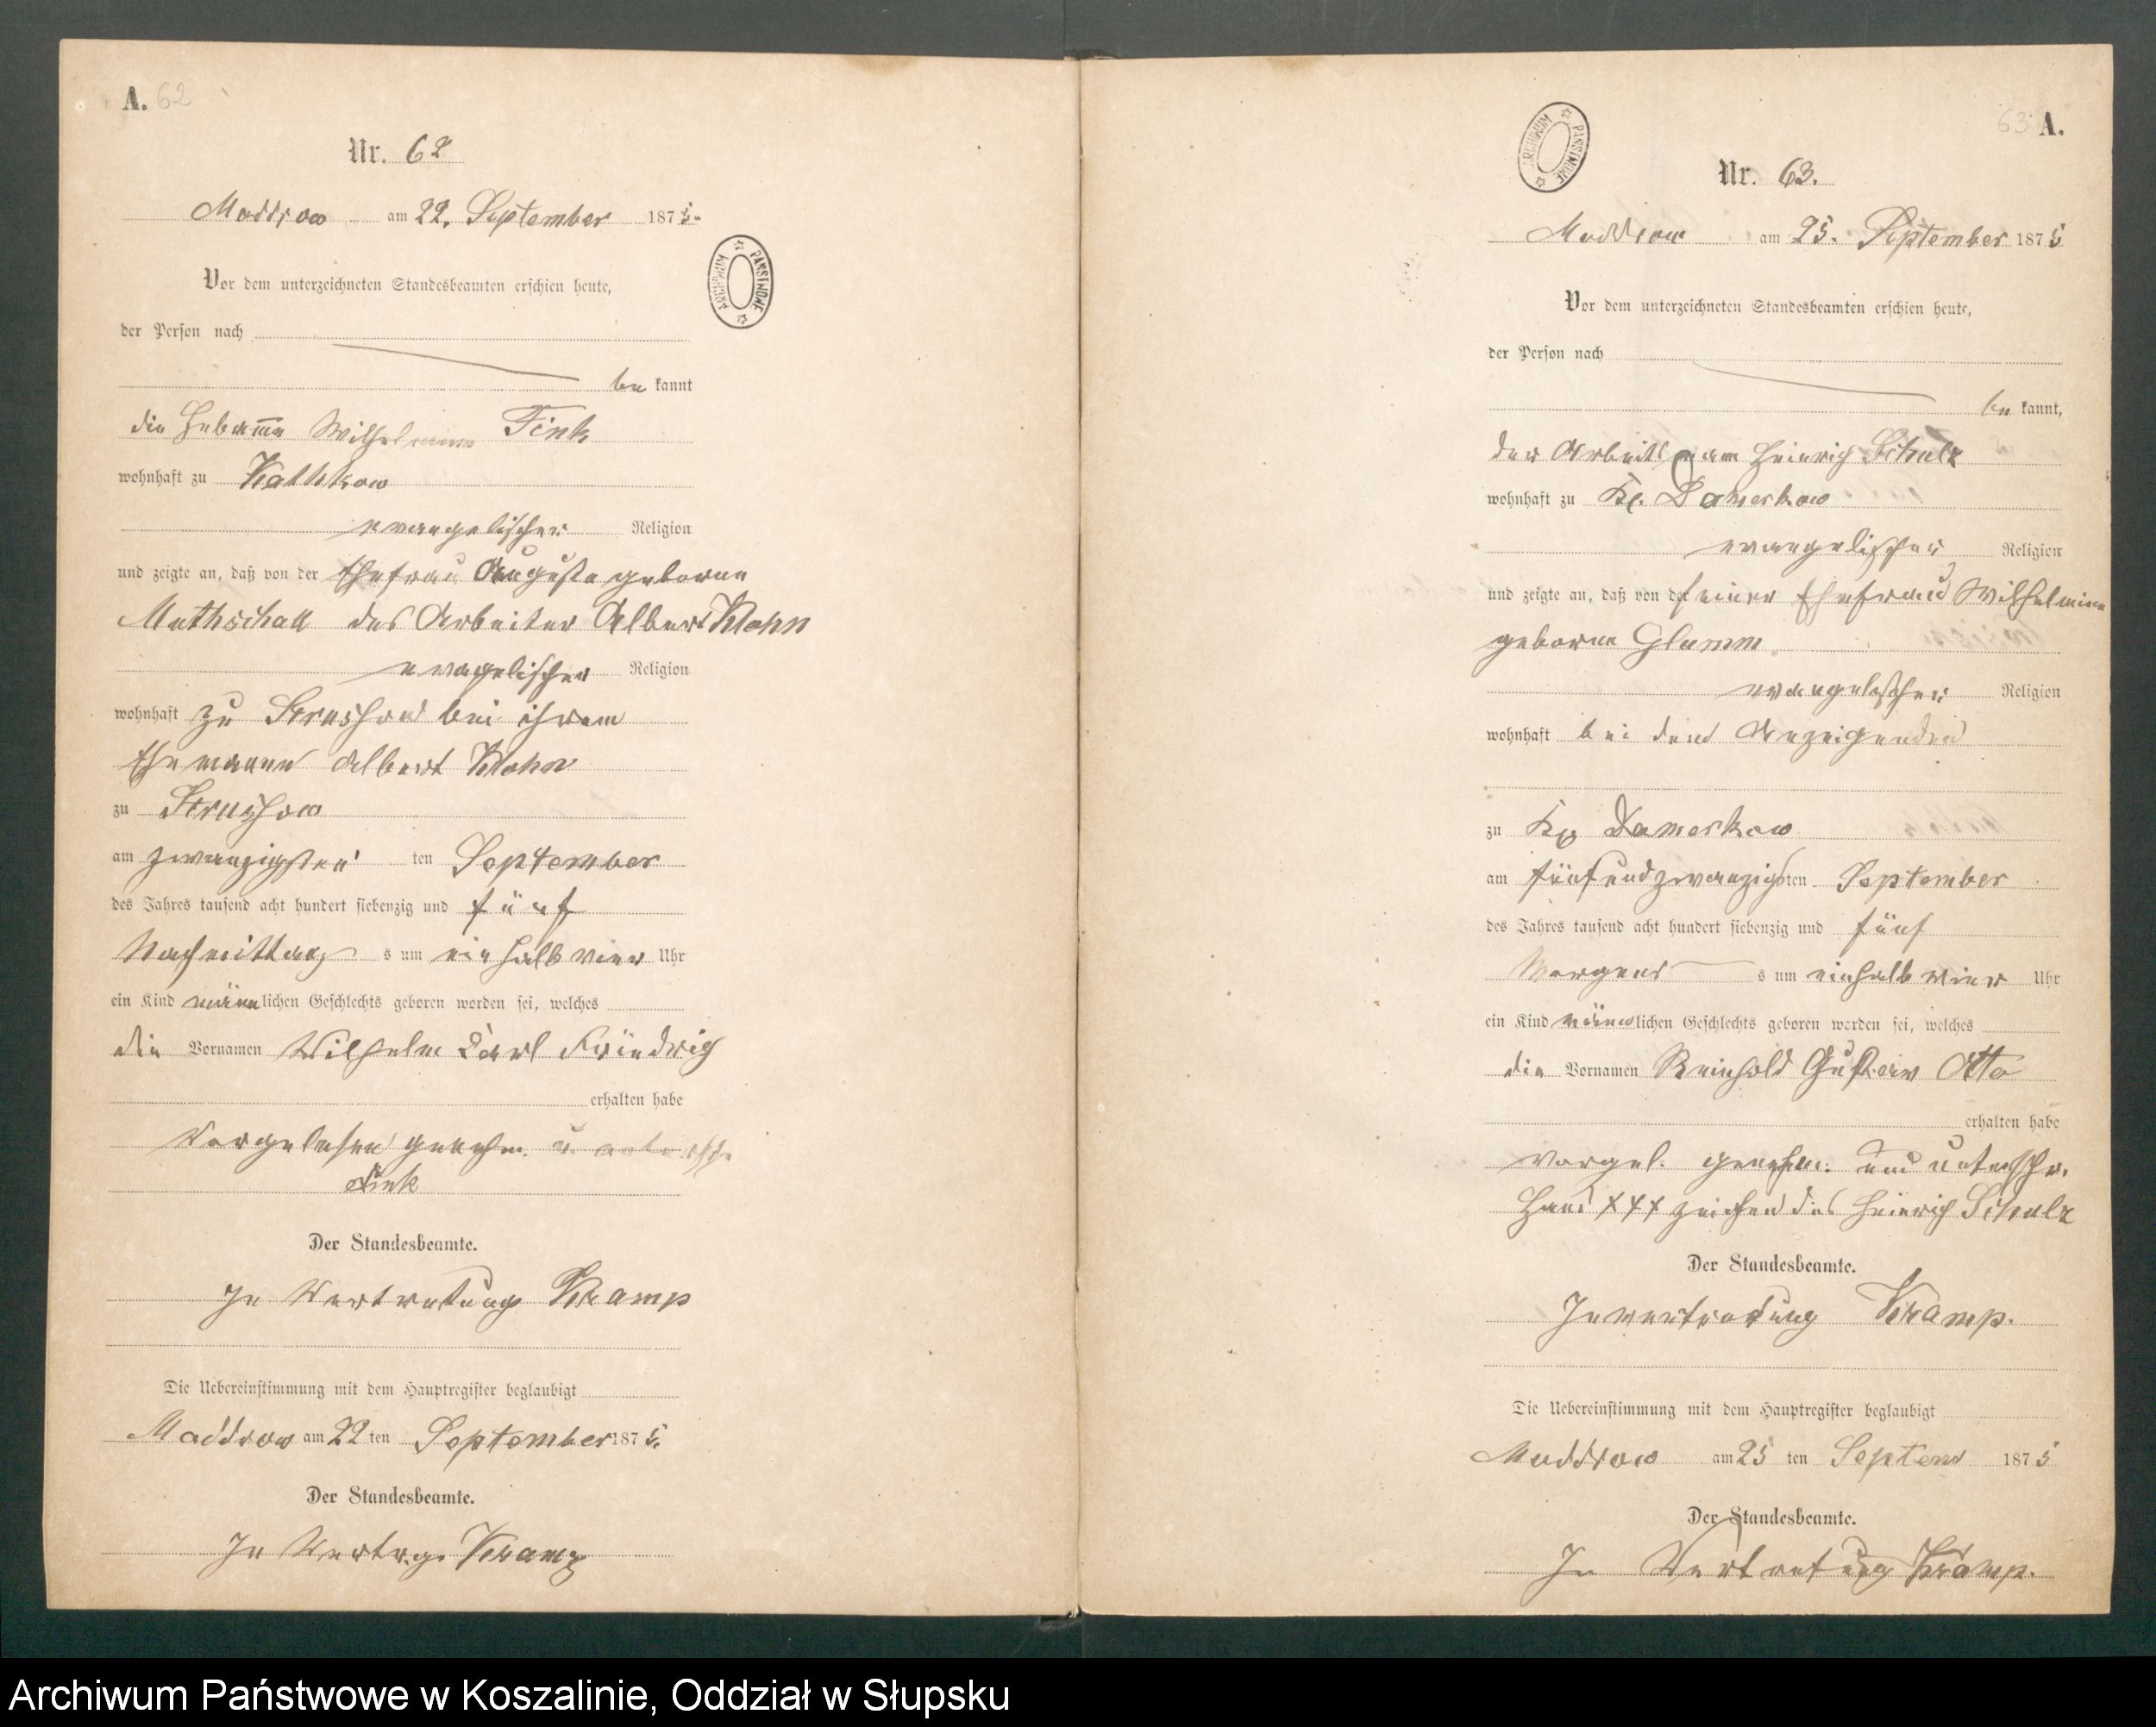 A. 62
Nr. 62
Maddrow am 22. September 1875.
ARCHIWUM PAŃSTWOWE
Vor dem unterzeichneten Standesbeamten erschien heute,
der Person nach
be kannt
die Hebamme Wilhelmine Fink
wohnhaft zu Kathkow
evangelischer Religion
und zeigte an, daß von der Ehefrau Auguste geborne
des Arbeiter Albert Klohn
evagelischer Religion
wohnhaft zu bei ihrem
Ehemann Albert Klohn
zu
am zwanzigsten ten September
des Jahres tausend acht hundert siebenzig und fünf
Nachmittag s um ein halb vier Uhr
ein Kind männlichen Geschlechts geboren worden sei, welches
die Vornamen Wilhelm Carl Friedrich
erhalten habe
Vorgelesen genehm. u.
Fink
Der Standesbeamte.
In Vertretung Kramp
Die Uebereinstimmung mit dem Hauptregister beglaubigt
Maddrow am 22 ten September 1875.
Der Standesbeamte.
In Vertrg. Kramp
63 A.
ARCHIWUM PAŃSTWOWE
Nr. 63.
Maddrow am 25. September 1875
Vor dem unterzeichneten Standesbeamten erschien heute,
der Person nach
be kannt,
der Arbeitsmann Heinrich Schulz
wohnhaft zu Kl. Damerkow
evangelischer Religion
und zeigte an, daß von der seiner Ehefrau Wilhelmine
geborne Glamm
evangelischer Religion
wohnhaft bei dem Anzeigenden
zu Kl. Damerkow
am fünfundzwanzigsten September
des Jahres tausend acht hundert siebenzig und fünf
Morgens s um einhalb vier Uhr
ein Kind männlichen Geschlechts geboren worden sei, welches
die Vornamen Reinhold Gustav Otto
erhalten habe
Vorgel. genehm. und unterschr.
Hand XXX zeichen des Heinrich Schulz
Der Standesbeamte.
In vertretung Kramp.
Die Uebereinstimmung mit dem Hauptregister beglaubigt
Maddrow am 25 ten Septem 1875
Der Standesbeamte.
In Vertretung Kramp.
Archiwum Państwowe w Koszalinie, Oddział w Słupsku